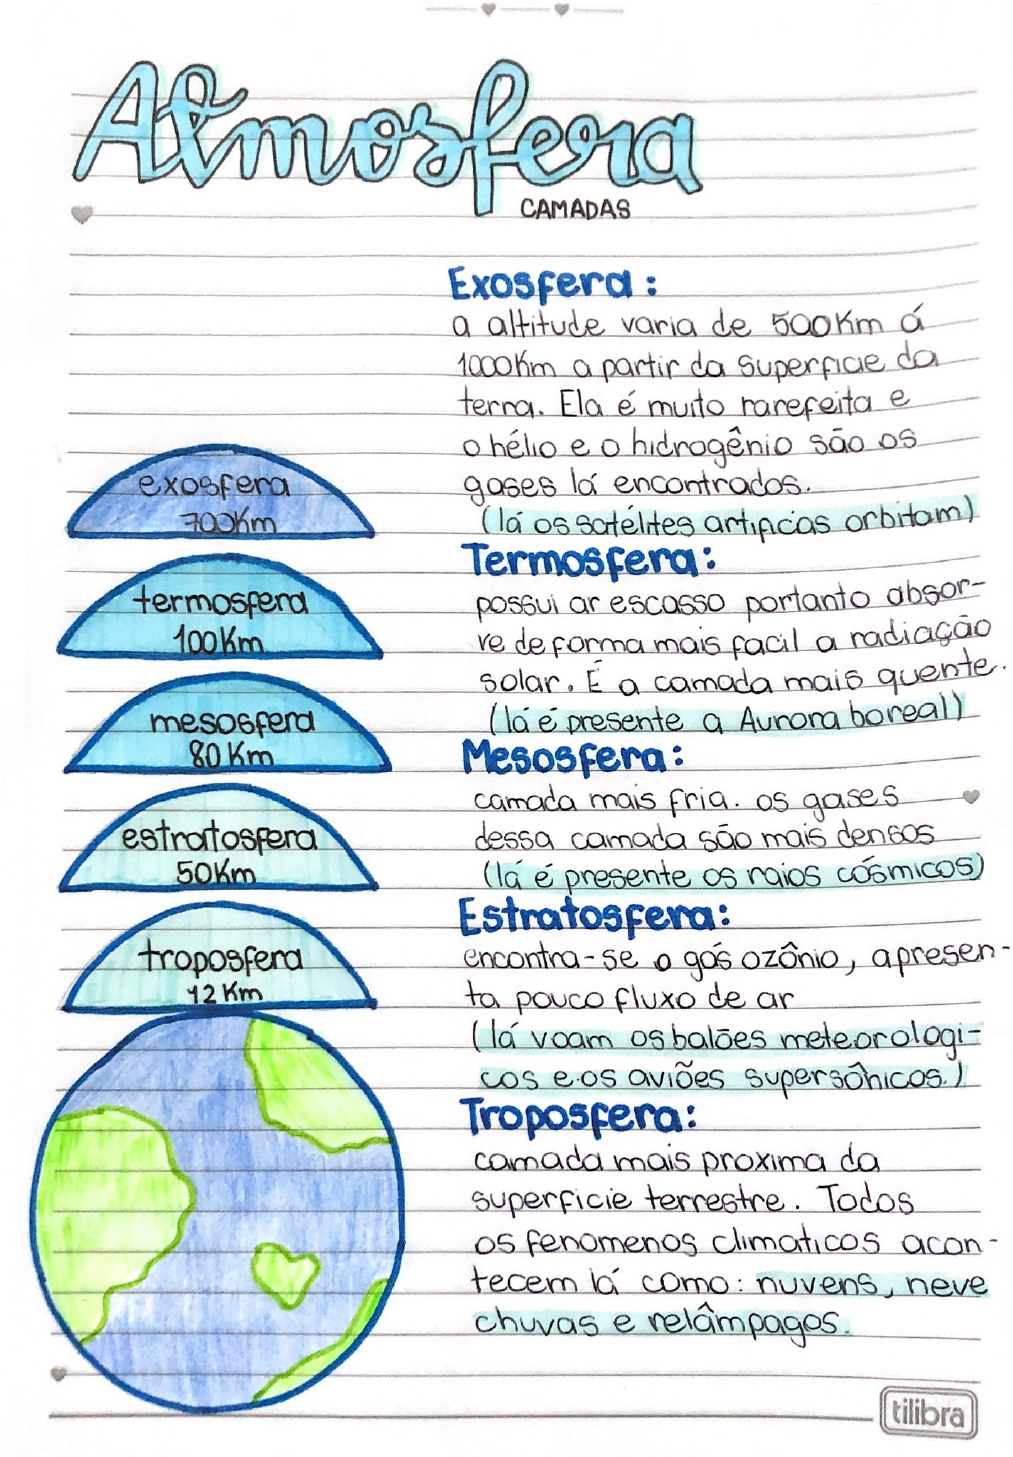 Atmosfera
CAMADAS
exosfera
700Km
termosfera
100Km
mesosfera
80Km
estratosfera
50Km
troposfera
12Km
Exosfera:
a altitude varia de 500Km á
1000Km a partir da superficie da
terra. Ela é muito rarefeita e
o hélio e o hidrogênio são os
gases lá encontrados.
(lá os satélites artificias orbitam)
Termosfera:
possui ar escasso portanto absor-
ve de forma mais facil a radiação
solar. É a camada mais quente.
(lá é presente a Aurora boreal)
Mesosfera:
camada mais fria. os gases
dessa camada são mais densos
(lá é presente os raios cósmicos)
Estratosfera:
encontra-se o gás ozônio, apresen-
ta pouco fluxo de ar
(lá voam os balões meteorologi-
cos e os aviões supersônicos.)
Troposfera:
camada mais proxima da
superficie terrestre. Todos
os fenomenos climaticos acon-
tecem lá como: nuvens, neve
chuvas e relâmpagos.
tilibra